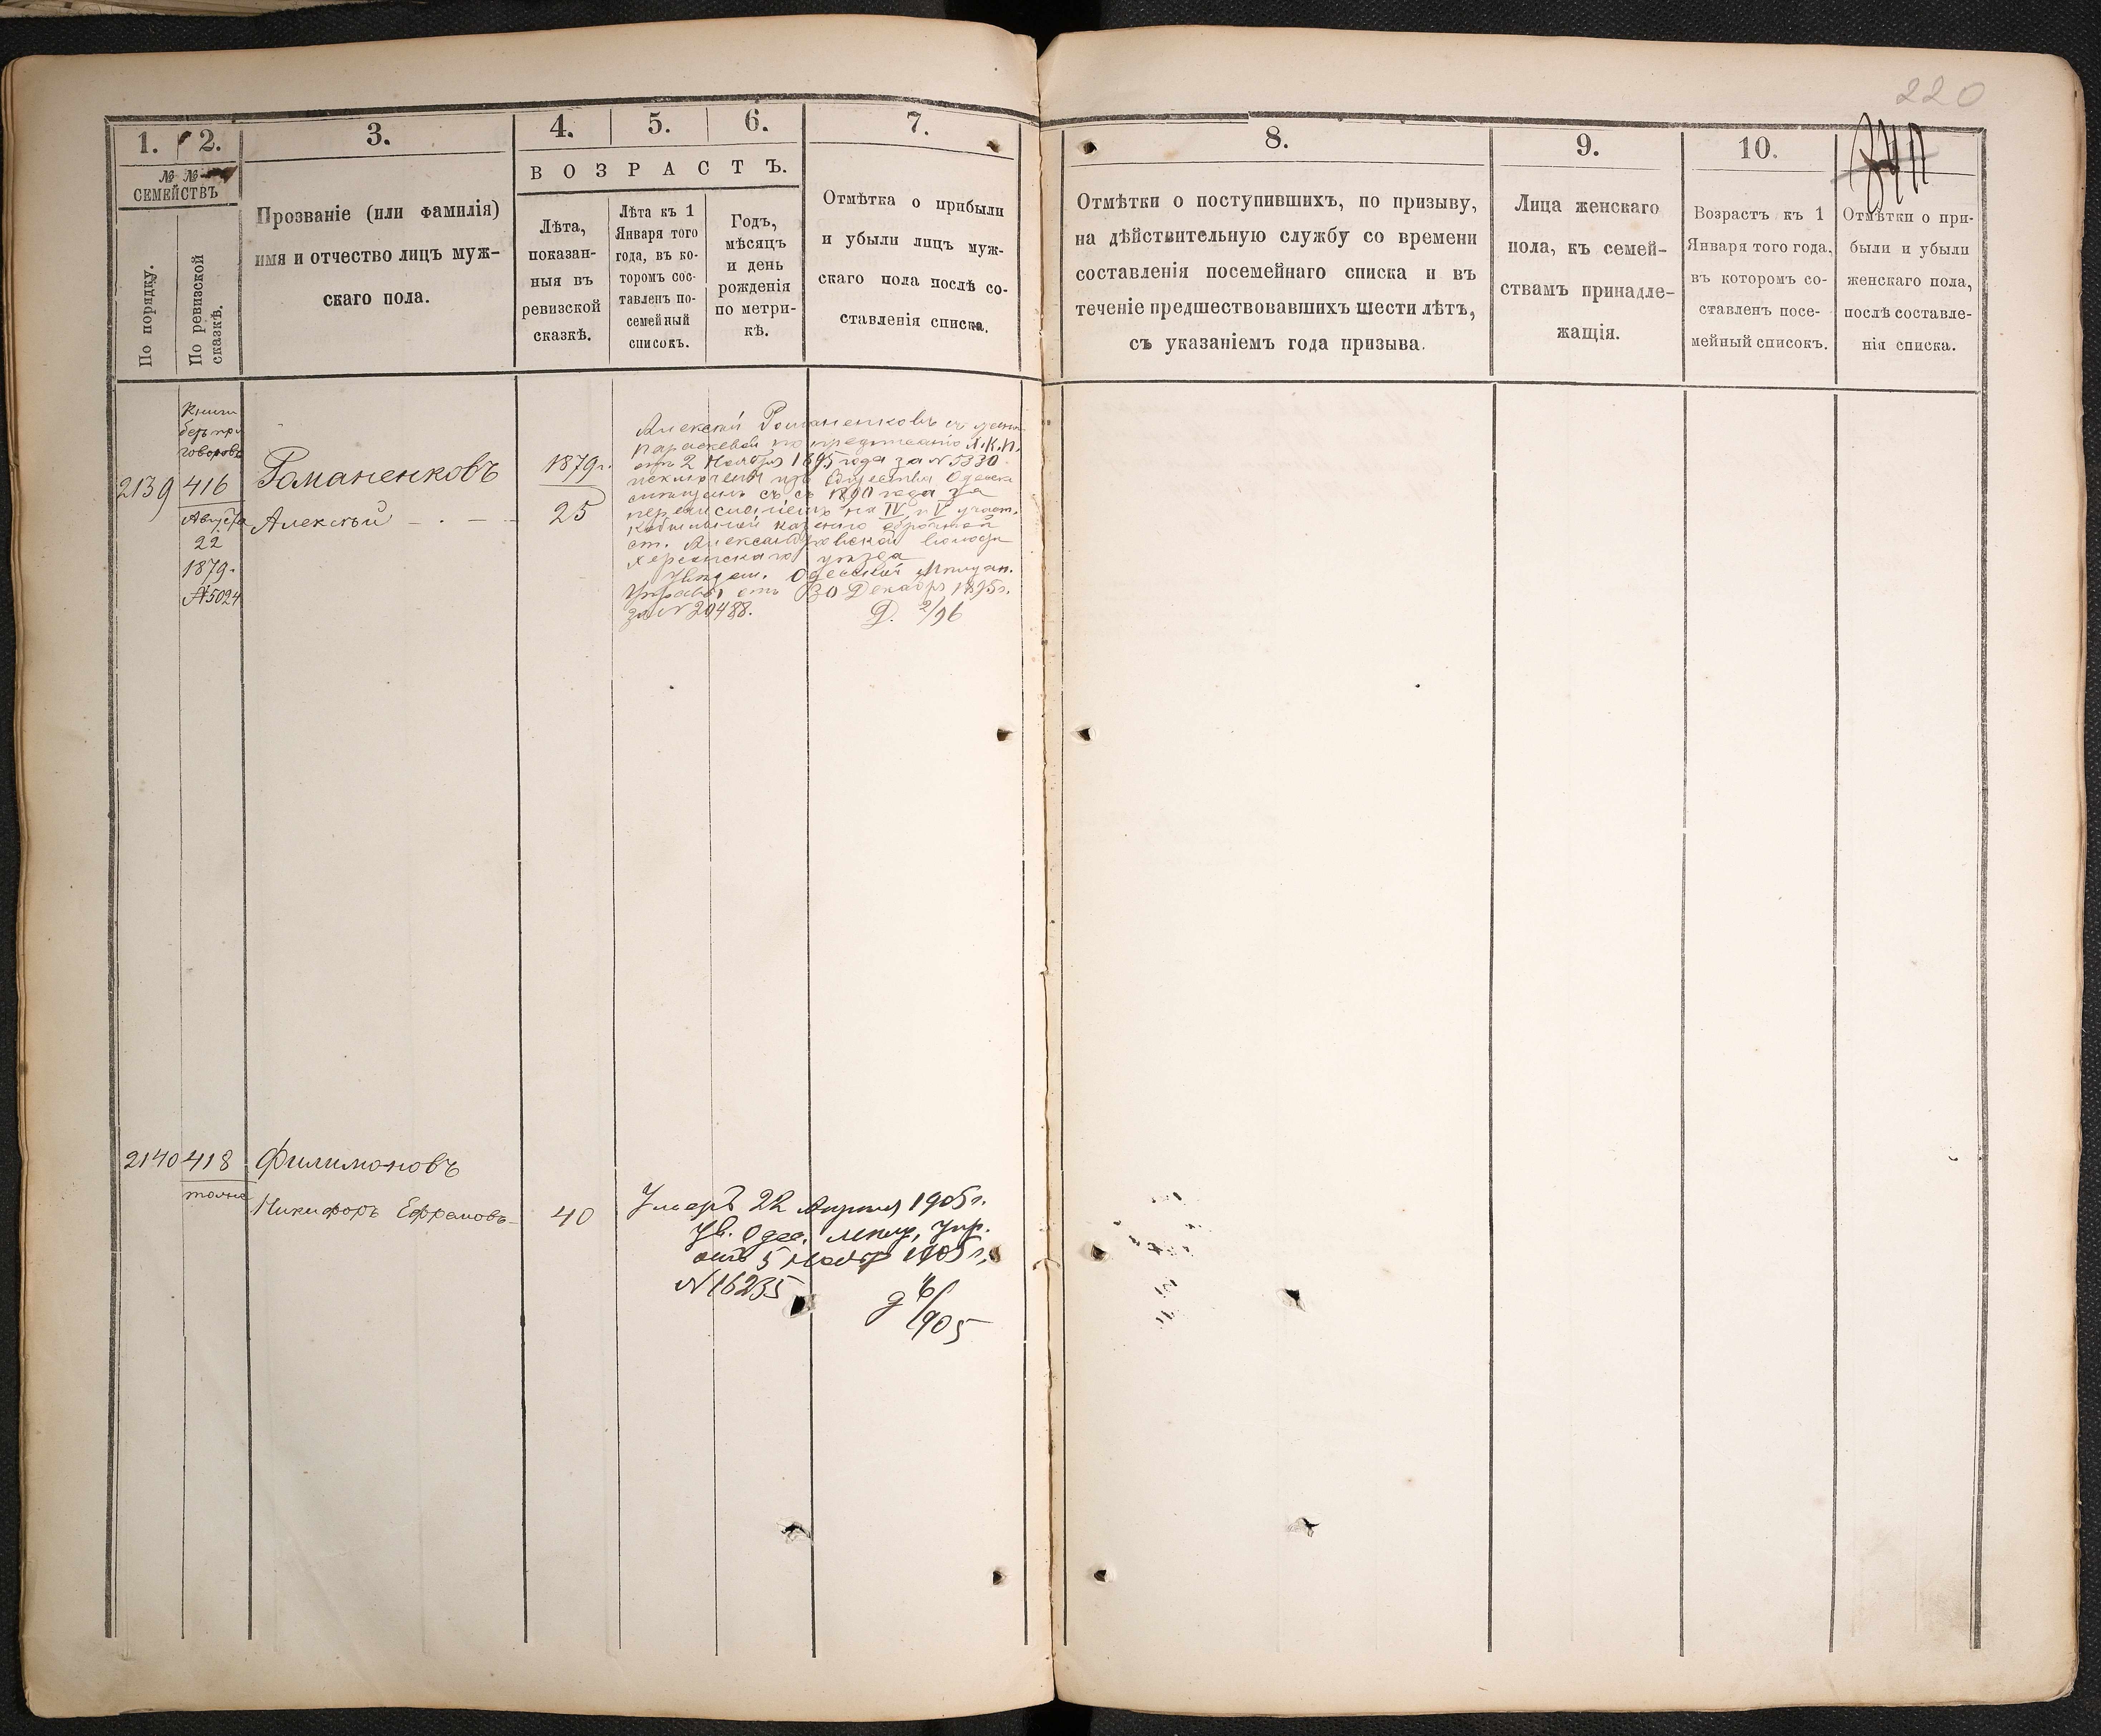 220
1. 2.
№ №
СЕМЕЙСТВЪ
По порядку.
По ревизской
сказкѣ.
3.
Прозваніе (или фамилія)
имя и отчество лицъ муж-
скаго пола.
4. 5. 6.
ВОЗРАСТЪ.
Лѣта,
показан-
ныя въ
ревизской
сказкѣ.
Лѣта къ 1
Января того
года, въ ко-
торомъ сос-
тавленъ по-
семейный
списокъ.
Годъ,
мѣсяцъ
и день
рожденія
по метри-
кѣ.
7.
Отмѣтка о прибыли
и убыли лицъ муж-
скаго пола послѣ со-
ставленія списка.
8.
Отмѣтки о поступившихъ, по призыву,
на дѣйствительную службу со времени
составленія посемейнаго списка и въ
теченіе предшествовавшихъ шести лѣтъ,
съ указаніемъ года призыва.
9.
Лица женскаго
пола, къ семей-
ствамъ принадле-
жащія.
10.
Возрастъ къ 1
Января того года,
въ которомъ со-
ставленъ посе-
мейный списокъ.
Отмѣтки о при-
были и убыли
женскаго пола,
послѣ составле-
нія списка.
2139
Книги
безъ при
говоровъ
416
Августа
22
1879.
№5024
Романенковъ
Алексѣй
1879г.
25
Алексѣй Романенковъ съ женою
Параскевой, по предписанію Х.К.П.
отъ 2 Ноября 1895 года за №5330
исключенъ изъ Общества Одесск
мѣщанъ съ 1890 года за
перечисленіемъ на IV и V участ.
казенно оброчной
ст. Александровской волости
Херсонскаго уѣзда
Увѣдом. Одесской Мѣщан.
Управы отъ 30 Декабря 1895г.
за №20488. Д. 2/96
2140
418
тоже
Филимоновъ
Никифоръ Ефремовъ
40
Умеръ 22 Апрѣля 1905г.
Ув. Одес. Мѣщ. Упр.
отъ 5 1905г.
№16235
д 6/905